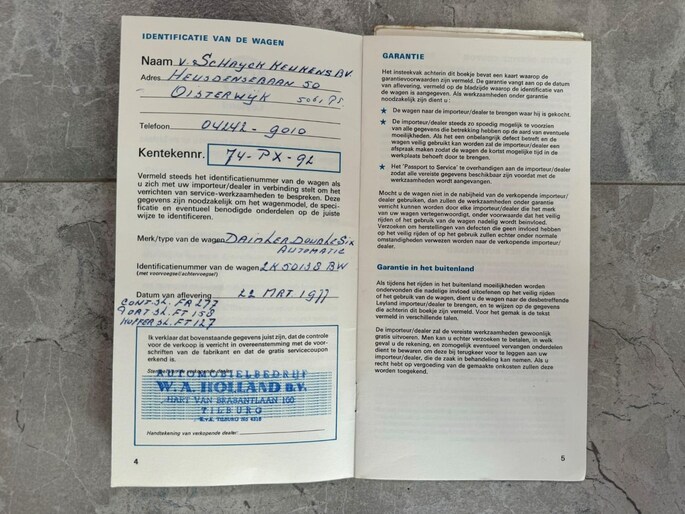 IDENTIFICATIE VAN DE WAGEN
Naam V. SCHAYCK KEUKENS B.V.
Adres HEUSDENSEBAAN 50
OISTERWIJK 5061 PS
Telefoon 04242-9010
Kentekennr. 74-PX-92
Vermeld steeds het identificatienummer van de wagen als
u zich met uw importeur/dealer in verbinding stelt om het
verrichten van service-werkzaamheden te bespreken. Deze
gegevens zijn noodzakelijk om het wagenmodel, de speci-
ficatie en eventueel benodigde onderdelen op de juiste
wijze te identificeren.
Merk/type van de wagen DAIMLER DOUBLE SIX
AUTOMATIC
Identificatienummer van de wagen 2K50138BW
(met voorvoegsel/achtervoegsel)
Datum van aflevering 22 MRT 1977
CONT.SL. FA 277
PORT.SL. FT 158
KOFFER SL. FT 127
Ik verklaar dat bovenstaande gegevens juist zijn, dat de controle
voor de verkoop is verricht in overeenstemming met de voor-
schriften van de fabrikant en dat de gratis servicecoupon
erkend is.
AUTOMOBIELBEDRIJF
W.A. HOLLAND B.V.
HART VAN BRABANTLAAN 100
TILBURG
Handtekening van verkopende dealer:
4
GARANTIE
Het insteekvak achterin dit boekje bevat een kaart waarop de
garantievoorwaarden zijn vermeld. De garantie vangt aan op de datum
van aflevering, vermeld op de bladzijde waarop de identificatie van
de wagen is aangegeven. Als werkzaamheden onder garantie
noodzakelijk zijn dient u :
★ De wagen naar de importeur/dealer te brengen waar hij is gekocht.
★ De importeur/dealer steeds zo spoedig mogelijk te voorzien
van alle gegevens die betrekking hebben op de aard van eventuele
moeilijkheden. Als het een onbelangrijk defect betreft en de
wagen veilig gebruikt kan worden zal de importeur/dealer een
afspraak maken zodat de wagen de kortst mogelijke tijd in de
werkplaats behoeft door te brengen.
★ Het 'Passport to Service' te overhandigen aan de importeur/dealer
zodat alle vereiste gegevens beschikbaar zijn voordat met de
werkzaamheden wordt aangevangen.
Mocht u de wagen niet in de nabijheid van de verkopende importeur/
dealer gebruiken, dan zullen de werkzaamheden onder garantie
verricht kunnen worden door elke importeur/dealer die het merk
van uw wagen vertegenwoordigt, onder voorwaarde dat het veilig
rijden of het gebruik van de wagen nadelig wordt beïnvloed.
Verzoeken om herstellingen van defecten die geen invloed hebben
op het veilig rijden of op het gebruik zullen echter onder normale
omstandigheden verwezen worden naar de verkopende importeur/
dealer.
Garantie in het buitenland
Als tijdens het rijden in het buitenland moeilijkheden worden
ondervonden die nadelige invloed uitoefenen op het veilig rijden
of het gebruik van de wagen, dient u de wagen naar de desbetreffende
Leyland importeur/dealer te brengen, en te wijzen op de gegevens
die achterin dit boekje zijn vermeld. Voor het gemak is de tekst
vermeld in verschillende talen.
De importeur/dealer zal de vereiste werkzaamheden gewoonlijk
gratis uitvoeren. Men kan u echter verzoeken te betalen, in welk
geval u de rekening, en zomogelijk eventueel vervangen onderdelen
dient te bewaren om deze bij terugkeer voor te leggen aan uw
importeur/dealer, die de zaak in behandeling kan nemen. Als u
recht hebt op vergoeding van de gemaakte onkosten zullen deze
worden toegekend.
5